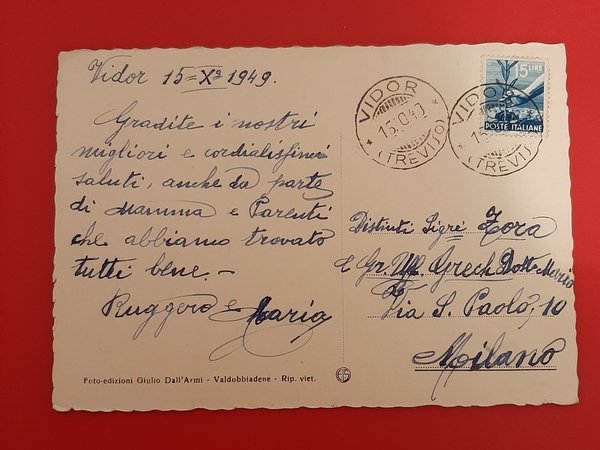 Vidor 15=Xº 1949.
Gradite i nostri
migliori e cordialissimi
saluti, anche da parte
di Mamma e Parenti
che abbiamo trovato
tutti bene.-
Ruggero e Maria
Foto-edizioni Giulio Dall'Armi - Valdobbiadene - Rip. viet.
VIDOR
(TREVISO)
VIDOR
(TREVISO)
15 LIRE
POSTE ITALIANE
Distinti Sigri Zora
e Gr. Uff. Grech Dott. Mario
Via S. Paolo, 10
Milano